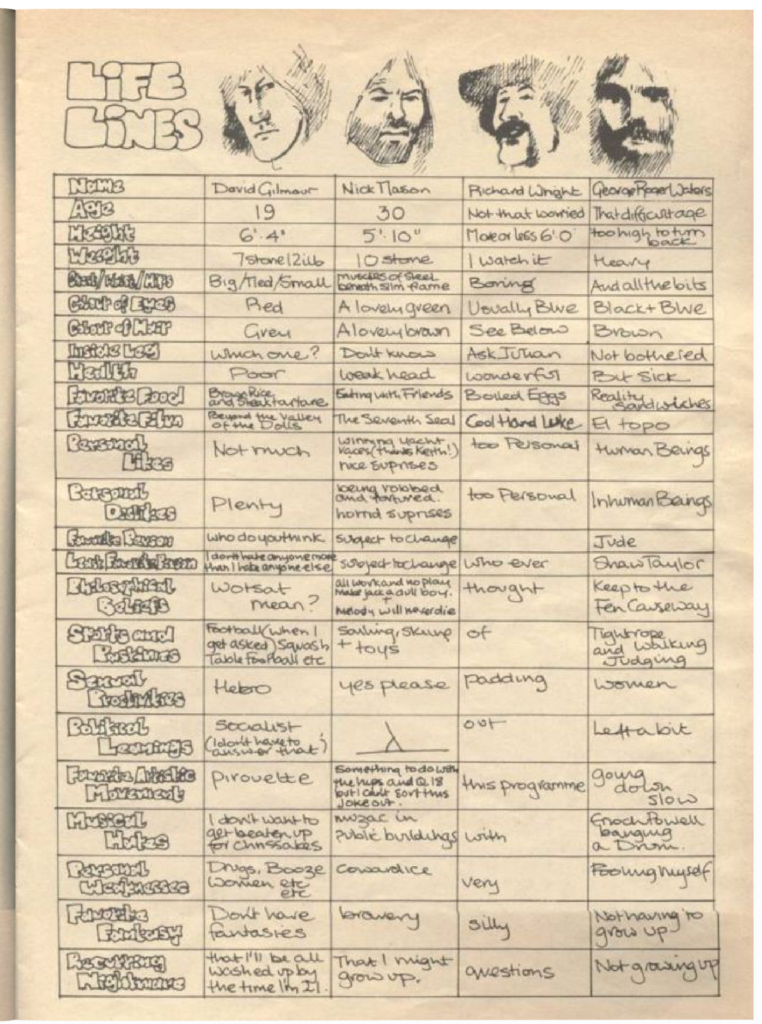 LIFE
LINES
Name David Gilmour Nick Mason Richard Wright George Roger Waters
Age 19 30 Not that worried That difficult age
Height 6'.4" 5'.10" More or less 6'0" too high to turn back
Weight 7 stone 12 lb 10 stone I watch it Heavy
Chest/Waist/Hips Big/Med/Small muscles of steel beneath slim frame Boring And all the bits
Colour of Eyes Red A lovely green Usually Blue Black + Blue
Colour of Hair Grey A lovely brown See Below Brown
Inside Leg Which one? Don't know Ask Julian Not bothered
Health Poor weak head wonderful But Sick
Favorite Food Brown Rice and Steak tartare Eating with Friends Boiled Eggs Reality Sandwiches
Favorite Film Beyond the Valley of the Dolls The Seventh Seal Cool Hand Luke El topo
Personal Likes Not much Winning yacht races (thanks Keith!) nice suprises too Personal Human Beings
Personal Dislikes Plenty being robbed and tortured. horrid suprises too Personal Inhuman Beings
Favorite Person who do you think subject to change Jude
Least Favorite Person I don't hate anyone more than I hate anyone else subject to change who ever Shaw Taylor
Philosophical Beliefs Wotsat mean? All work and no play make jack a dull boy. + Melody will never die thought Keep to the Fen Causeway
Sports and Pastimes Football (when I get asked) Squash Table Football etc Sailing, skiing + toys of Tightrope and walking Judging
Sexual Proclivities Hetro yes please padding Women
Political Leanings Socialist (I don't have to answer that) out Left a bit
Favorite Artistic Movement Pirouette Something to do with the hips and Q.18 but I can't sort this joke out. this programme going down slow
Musical Hates I don't want to get beaten up for chrissakes muzac in Public buildings with Enoch Powell banging a Drum.
Personal Weaknesses Drugs, Booze Women etc etc Cowardice very Fooling myself
Favorite Fantasy Don't have fantasies bravery silly Not having to grow up
Recurring Nightmare that I'll be all washed up by the time I'm 21. That I might grow up. questions Not growing up